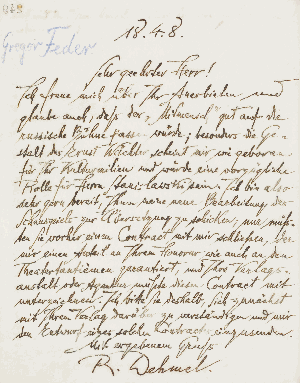 Gregor Feder
18.4.8.
Sehr geehrter Herr!
Ich freue mich über Ihr Anerbieten und
glaube auch, daß der „Mitmensch" gut auf die
russische Bühne passen würde; besonders die Ge-
stalt des Ernst Wächter scheint mir wie geboren
für Ihr Publikum und würde eine vorzügliche
Rolle für Herrn Stanislawski sein. Ich bin also
sehr gern bereit, Ihnen meine neue Bearbeitung des
Schauspiels zur Übersetzung zu schicken, nur müß-
ten Sie vorher einen Contract mit mir schließen, der
mir einen Anteil an Ihrem Honorar wie auch an den
Theatertantièmen garantiert, und Ihre Verlags-
anstalt oder Agentur müßte diesen Contract mit
unterzeichnen. Ich bitte Sie deshalb, sich zunächst
mit Ihrem Verlag darüber zu verständigen und mir
den Entwurf eines solchen Contracts einzusenden.
Mit ergebenem Gruß
R. Dehmel.